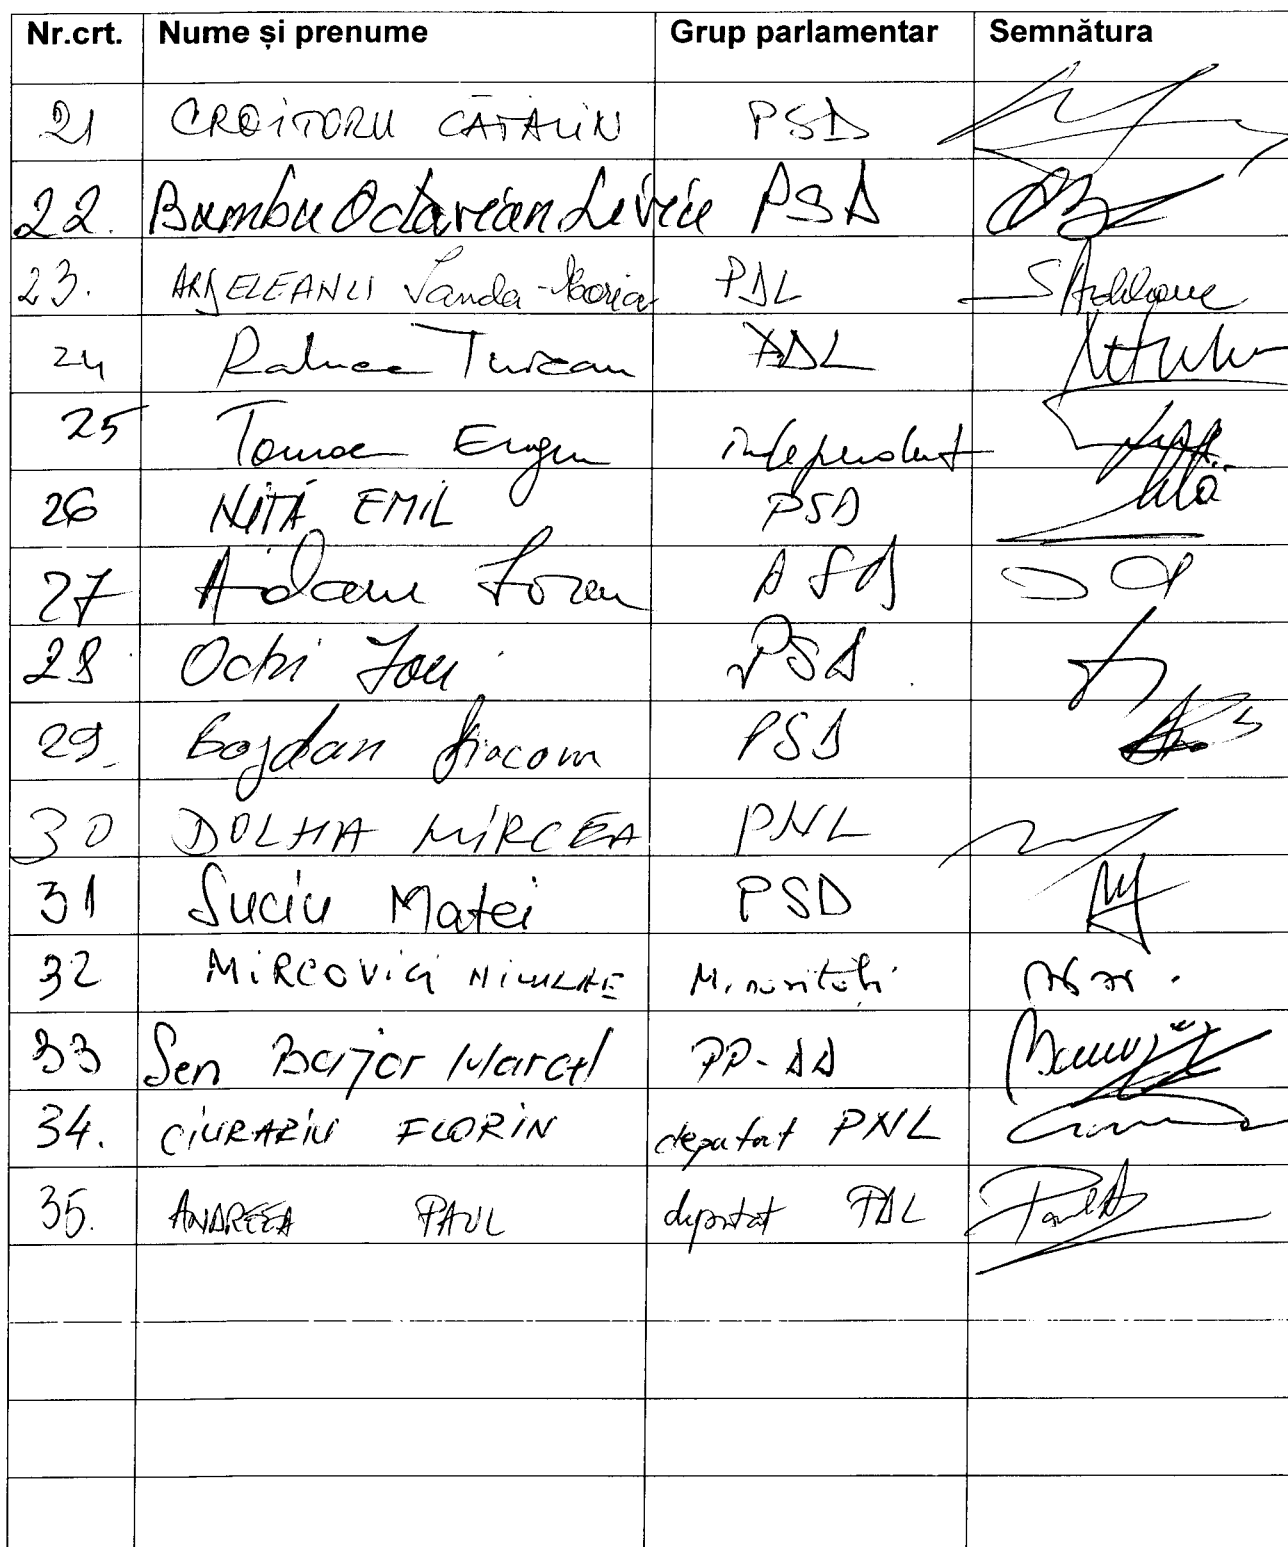 Nr.crt. Nume și prenume Grup parlamentar Semnătura
21 CROITORU CĂTĂLIN PSD
22. Bumbu Octavian Liviu PSD
23. ARDELEANU Sanda-Maria PDL
24 Raluca Turcan PDL
25 Tomac Eugen independent
26 NIȚĂ EMIL PSD
27 Adam Ioan PSD
28 Ochi Ion PSD
29. Bogdan Diaconu PSD
30 DOLHA MIRCEA PNL
31 Suciu Matei PSD
32 MIRCOVICI NICULAE Minorități
33 Sen Bujor Marcel PP-DD
34. CIURARIU FLORIN deputat PNL
35. ANDREEA PAUL deputat PDL